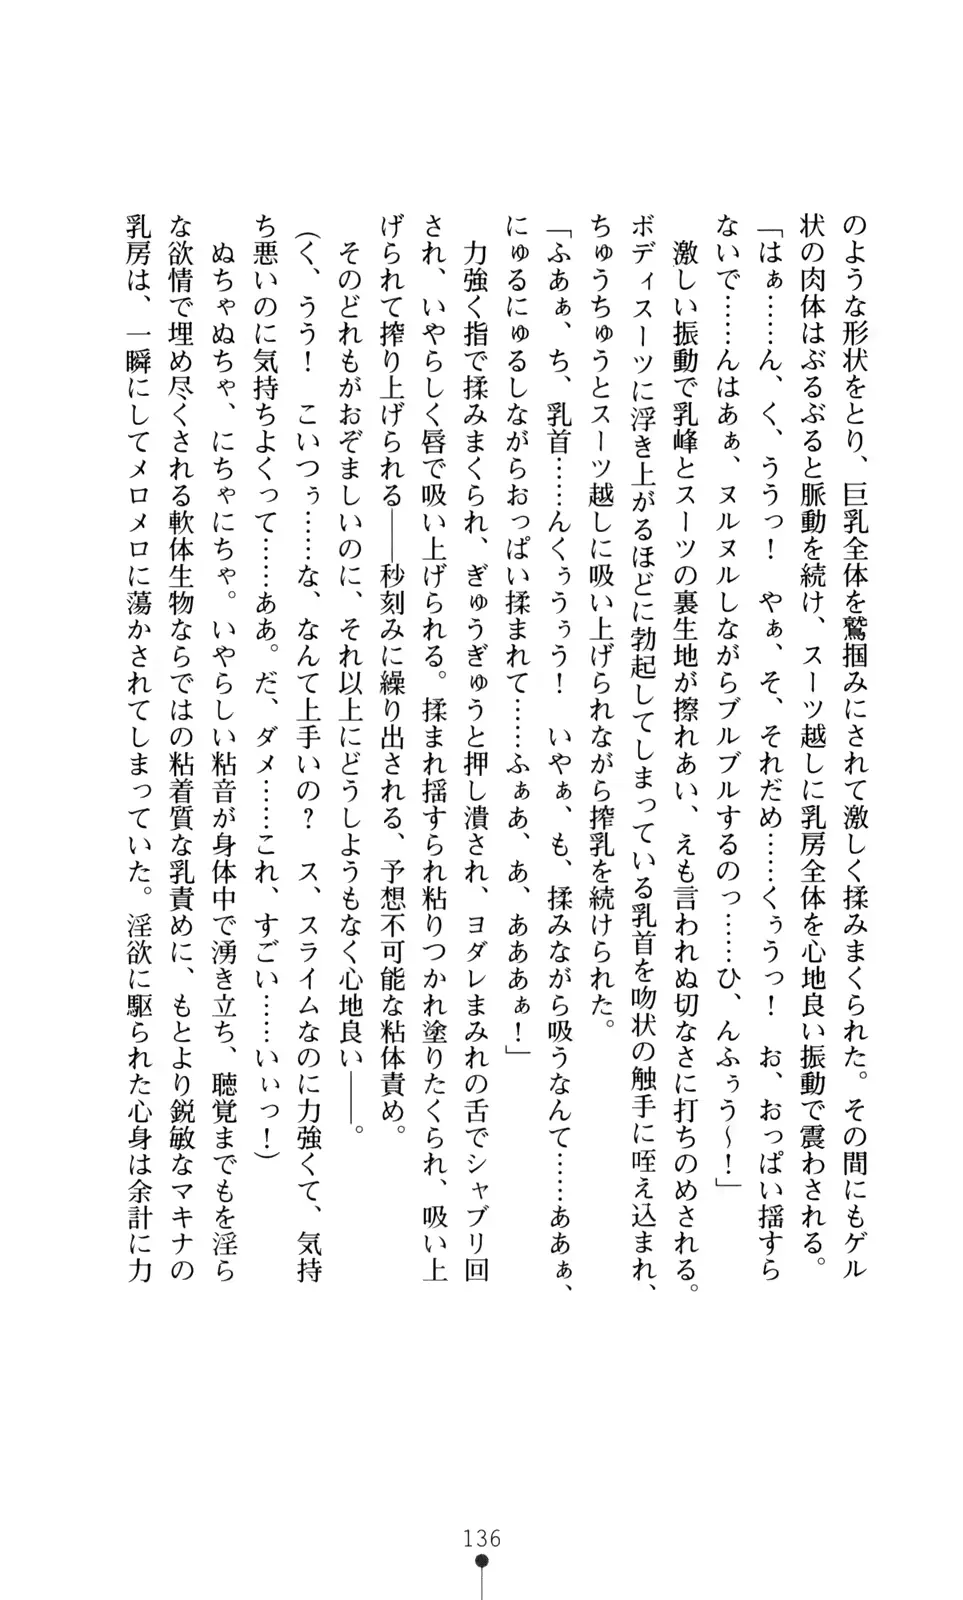 のような形状をとり、巨乳全体を鷲掴みにされて激しく揉みまくられた。その間にもゲル
状の肉体はぶるぶると脈動を続け、スーツ越しに乳房全体を心地良い振動で震わされる。
「はぁ……ん、く、ううっ！　やぁ、そ、それだめ……くぅうっ！　お、おっぱい揺すら
ないで……んはあぁ、ヌルヌルしながらブルブルするのっ……ひ、んふぅう～！」
　激しい振動で乳峰とスーツの裏生地が擦れあい、えも言われぬ切なさに打ちのめされる。
ボディスーツに浮き上がるほどに勃起してしまっている乳首を吻状の触手に咥え込まれ、
ちゅうちゅうとスーツ越しに吸い上げられながら搾乳を続けられた。
「ふあぁ、ち、乳首……んくぅうぅう！　いやぁ、も、揉みながら吸うなんて……ああぁ、
にゅるにゅるしながらおっぱい揉まれて……ふぁあ、あ、あああぁ！」
　力強く指で揉みまくられ、ぎゅうぎゅうと押し潰され、ヨダレまみれの舌でシャブリ回
され、いやらしく唇で吸い上げられる。揉まれ揺すられ粘りつかれ塗りたくられ、吸い上
げられて搾り上げられる――秒刻みに繰り出される、予想不可能な粘体責め。
　そのどれもがおぞましいのに、それ以上にどうしようもなく心地良い――。
（く、うう！　こいつぅ……な、なんて上手いの？　ス、スライムなのに力強くて、気持
ち悪いのに気持ちよくって……ああ。だ、ダメ……これ、すごい……いぃっ！）
　ぬちゃぬちゃ、にちゃにちゃ。いやらしい粘音が身体中で湧き立ち、聴覚までもを淫ら
な欲情で埋め尽くされる軟体生物ならではの粘着質な乳責めに、もとより鋭敏なマキナの
乳房は、一瞬にしてメロメロに蕩かされてしまっていた。淫欲に駆られた心身は余計に力
136